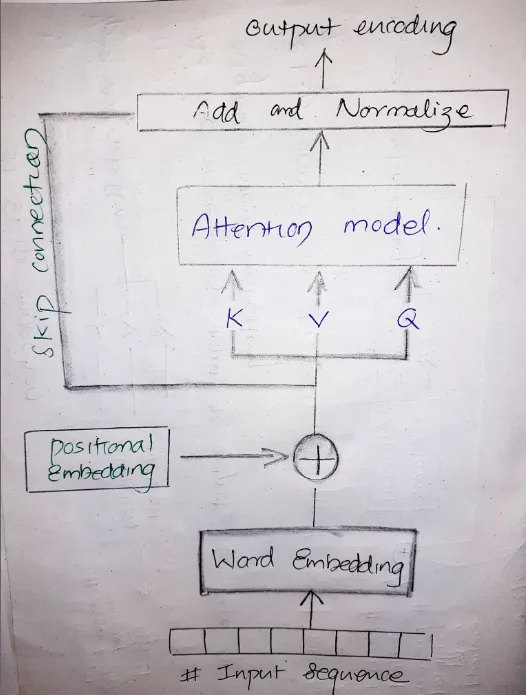 Output encoding
Add and Normalize
Skip connection
Attention model.
K V Q
positional
Embedding
Word Embedding
# Input Sequence